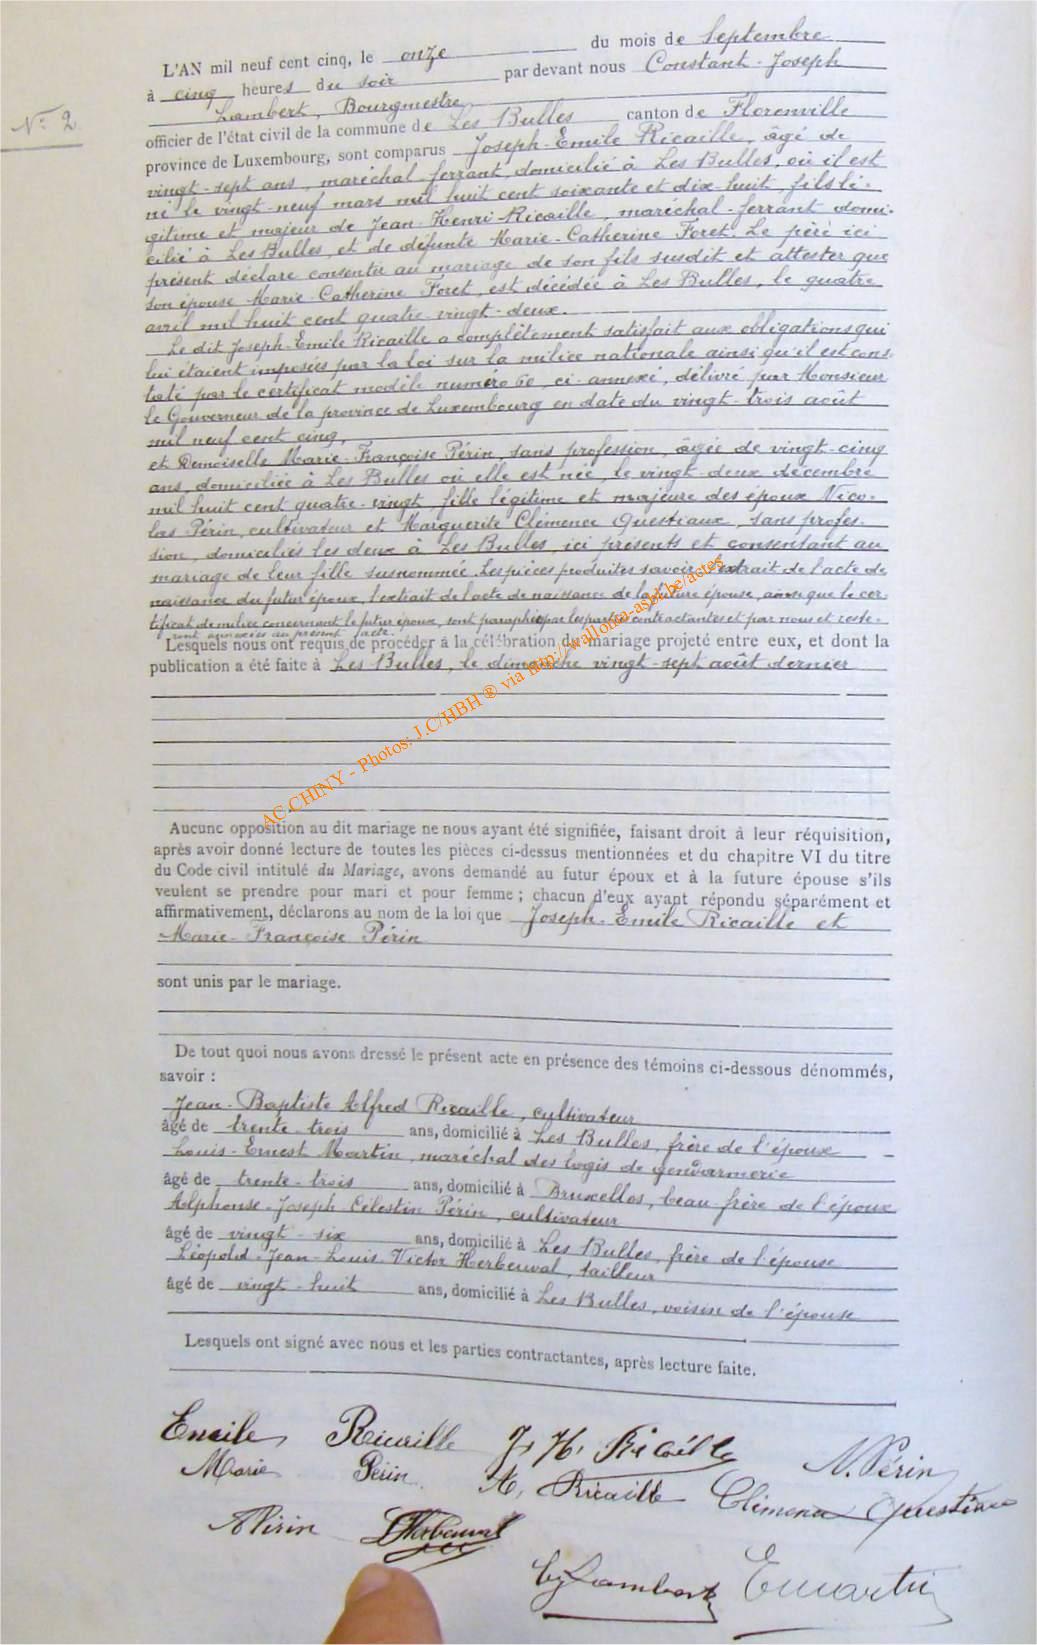 L'AN mil neuf cent cinq, le onze du mois de Septembre
à cinq heures du soir par devant nous Constant-Joseph
Lambert, Bourgmestre
N° 2
officier de l'état civil de la commune de Les Bulles canton de Florenville
province de Luxembourg, sont comparus Joseph-Emile Ricaille, âgé de
vingt-sept ans, maréchal-ferrant, domicilié à Les Bulles, où il est
né le vingt-neuf mars mil huit cent soixante et dix-huit, fils lé-
gitime et majeur de Jean-Henri Ricaille, maréchal-ferrant domi-
cilié à Les Bulles, et de défunte Marie-Catherine Foret. Le père ici
présent déclare consentir au mariage de son fils susdit et attester que
son épouse Marie-Catherine Foret, est décédée à Les Bulles, le quatre
avril mil huit cent quatre-vingt-deux.
Le dit Joseph-Emile Ricaille a complètement satisfait aux obligations qui
lui étaient imposées par la loi sur la milice nationale ainsi qu'il est cons-
taté par le certificat modèle numéro 60, ci-annexé, délivré par Monsieur
le Gouverneur de la province de Luxembourg en date du vingt-trois août
mil neuf cent cinq,
et Demoiselle Marie-Françoise Périn, sans profession, âgée de vingt-cinq
ans, domiciliée à Les Bulles où elle est née, le vingt-deux décembre
mil huit cent quatre-vingt, fille légitime et majeure des époux Nico-
las Périn, cultivateur et Marguerite Clémence Questiaux, sans profes-
sion, domiciliés les deux à Les Bulles, ici présents et consentant au
mariage de leur fille susnommée. Les pièces produites savoir: l'extrait de l'acte de
naissance du futur époux, l'extrait de l'acte de naissance de la future épouse, ainsi que le cer-
tificat de milice concernant le futur époux, sont paraphés par les parties contractantes et par nous et reste-
ront annexées au présent acte.
Lesquels nous ont requis de procéder à la célébration du mariage projeté entre eux, et dont la
publication a été faite à Les Bulles, le dimanche vingt-sept août dernier
AC CHINY - Photos: J.C/HBH ® via http://wallonia-asbl.be/actes
Aucune opposition au dit mariage ne nous ayant été signifiée, faisant droit à leur réquisition,
après avoir donné lecture de toutes les pièces ci-dessus mentionnées et du chapitre VI du titre
du Code civil intitulé du Mariage, avons demandé au futur époux et à la future épouse s'ils
veulent se prendre pour mari et pour femme ; chacun d'eux ayant répondu séparément et
affirmativement, déclarons au nom de la loi que Joseph-Emile Ricaille et
Marie-Françoise Périn
sont unis par le mariage.
De tout quoi nous avons dressé le présent acte en présence des témoins ci-dessous dénommés,
savoir :
Jean-Baptiste Alfred Ricaille, cultivateur
âgé de trente-trois ans, domicilié à Les Bulles, frère de l'époux
Louis-Ernest Martin, maréchal des logis de gendarmerie
âgé de trente-trois ans, domicilié à Bruxelles, beau-frère de l'époux
Alphonse-Joseph-Célestin Périn, cultivateur
âgé de vingt-six ans, domicilié à Les Bulles, frère de l'épouse
Léopold-Jean-Louis-Victor Herbeuval, tailleur
âgé de vingt-huit ans, domicilié à Les Bulles, voisin de l'épouse
Lesquels ont signé avec nous et les parties contractantes, après lecture faite.
Emile Ricaille J. H. Ricaille N. Périn
Marie Périn A. Ricaille Clémence Questiaux
A Périn L Herbeuval
Cj Lambert E Martin